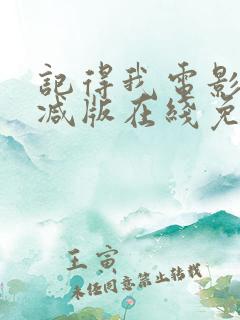 記得我電影
減版在綫免
王寅
未经同意禁止转载